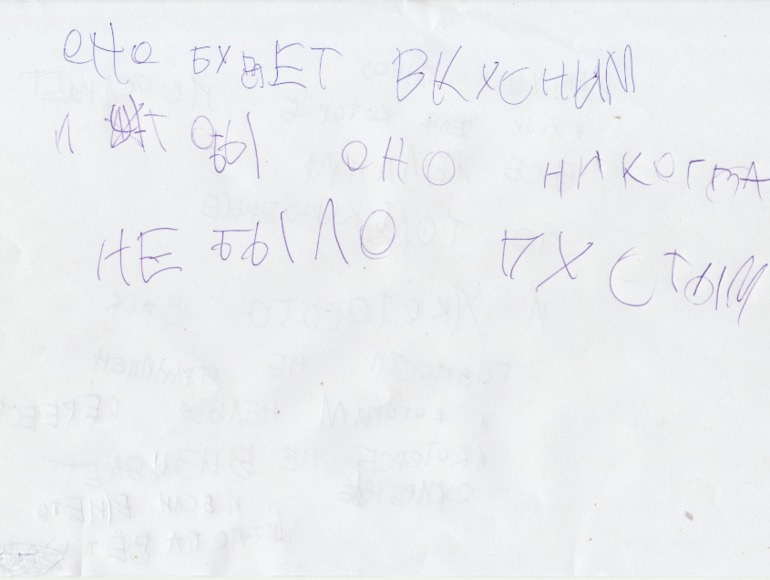 ОНО БХДЕТ ВКХСНЫМ
И ЧТ ОБЫ ОНО НИКОГДА
НЕ БЫЛО ПХСТЫМ